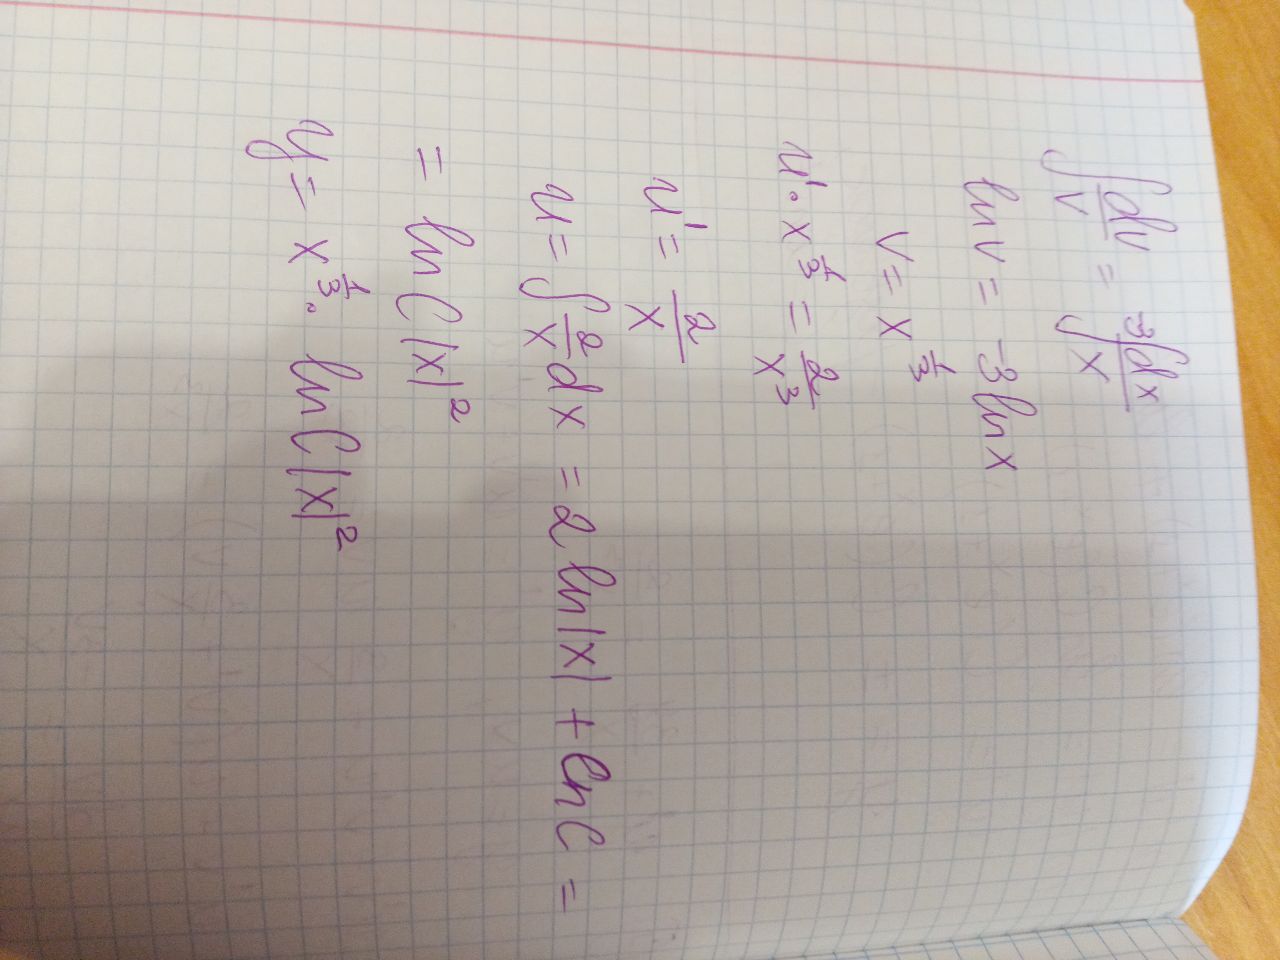 ∫ dv/v = -3∫ dx/x
ln v = -3 ln x
v = x^(1/3)
u' · x^(1/3) = 2/x^3
u' = 2/x
u = ∫ 2/x dx = 2 ln|x| + ln C =
= ln C|x|^2
y = x^(1/3) · ln C|x|^2